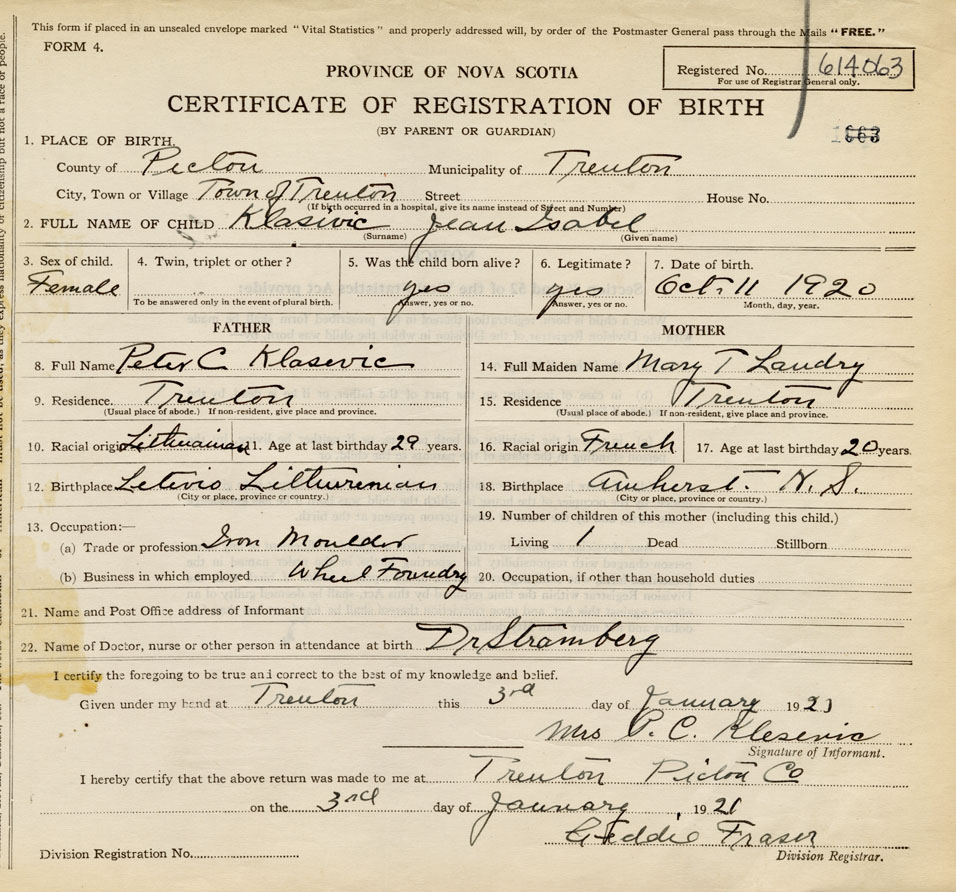 This form if placed in an unsealed envelope marked "Vital Statistics" and properly addressed will, by order of the Postmaster General pass through the Mails "FREE."
FORM 4.
Registered No. 614063
For use of Registrar General only.
PROVINCE OF NOVA SCOTIA
CERTIFICATE OF REGISTRATION OF BIRTH
(BY PARENT OR GUARDIAN)
1. PLACE OF BIRTH.
County of Picton Municipality of Trenton
City, Town or Village Town of Trenton Street House No.
(If birth occurred in a hospital, give its name instead of Street and Number)
2. FULL NAME OF CHILD Klasivic Jean Isabel
(Surname) (Given name)
3. Sex of child. 4. Twin, triplet or other? 5. Was the child born alive? 6. Legitimate? 7. Date of birth.
Female yes yes Oct. 11 1920
To be answered only in the event of plural birth. Answer, yes or no. Answer, yes or no. Month, day, year.
FATHER MOTHER
8. Full Name Peter C Klasevic 14. Full Maiden Name Mary T Landry
9. Residence. Trenton 15. Residence Trenton
(Usual place of abode.) If non-resident, give place and province. (Usual place of abode.) If non-resident, give place and province.
10. Racial origin Lithuainian 11. Age at last birthday 29 years. 16. Racial origin French 17. Age at last birthday 20 years.
12. Birthplace Letivio Lithurenian 18. Birthplace Amherst. N. S.
(City or place, province or country.) (City or place, province or country.)
13. Occupation:— 19. Number of children of this mother (including this child.)
(a) Trade or profession Iron Moulder Living 1 Dead Stillborn
(b) Business in which employed Wheel Foundry 20. Occupation, if other than household duties
21. Name and Post Office address of Informant
22. Name of Doctor, nurse or other person in attendance at birth Dr Stramberg
I certify the foregoing to be true and correct to the best of my knowledge and belief.
Given under my hand at Trenton this 3rd day of January 1921
Mrs P. C. Klesevic
Signature of Informant.
I hereby certify that the above return was made to me at Trenton Picton Co
on the 3rd day of January, 1921
Geddie Fraser
Division Registrar.
Division Registration No.